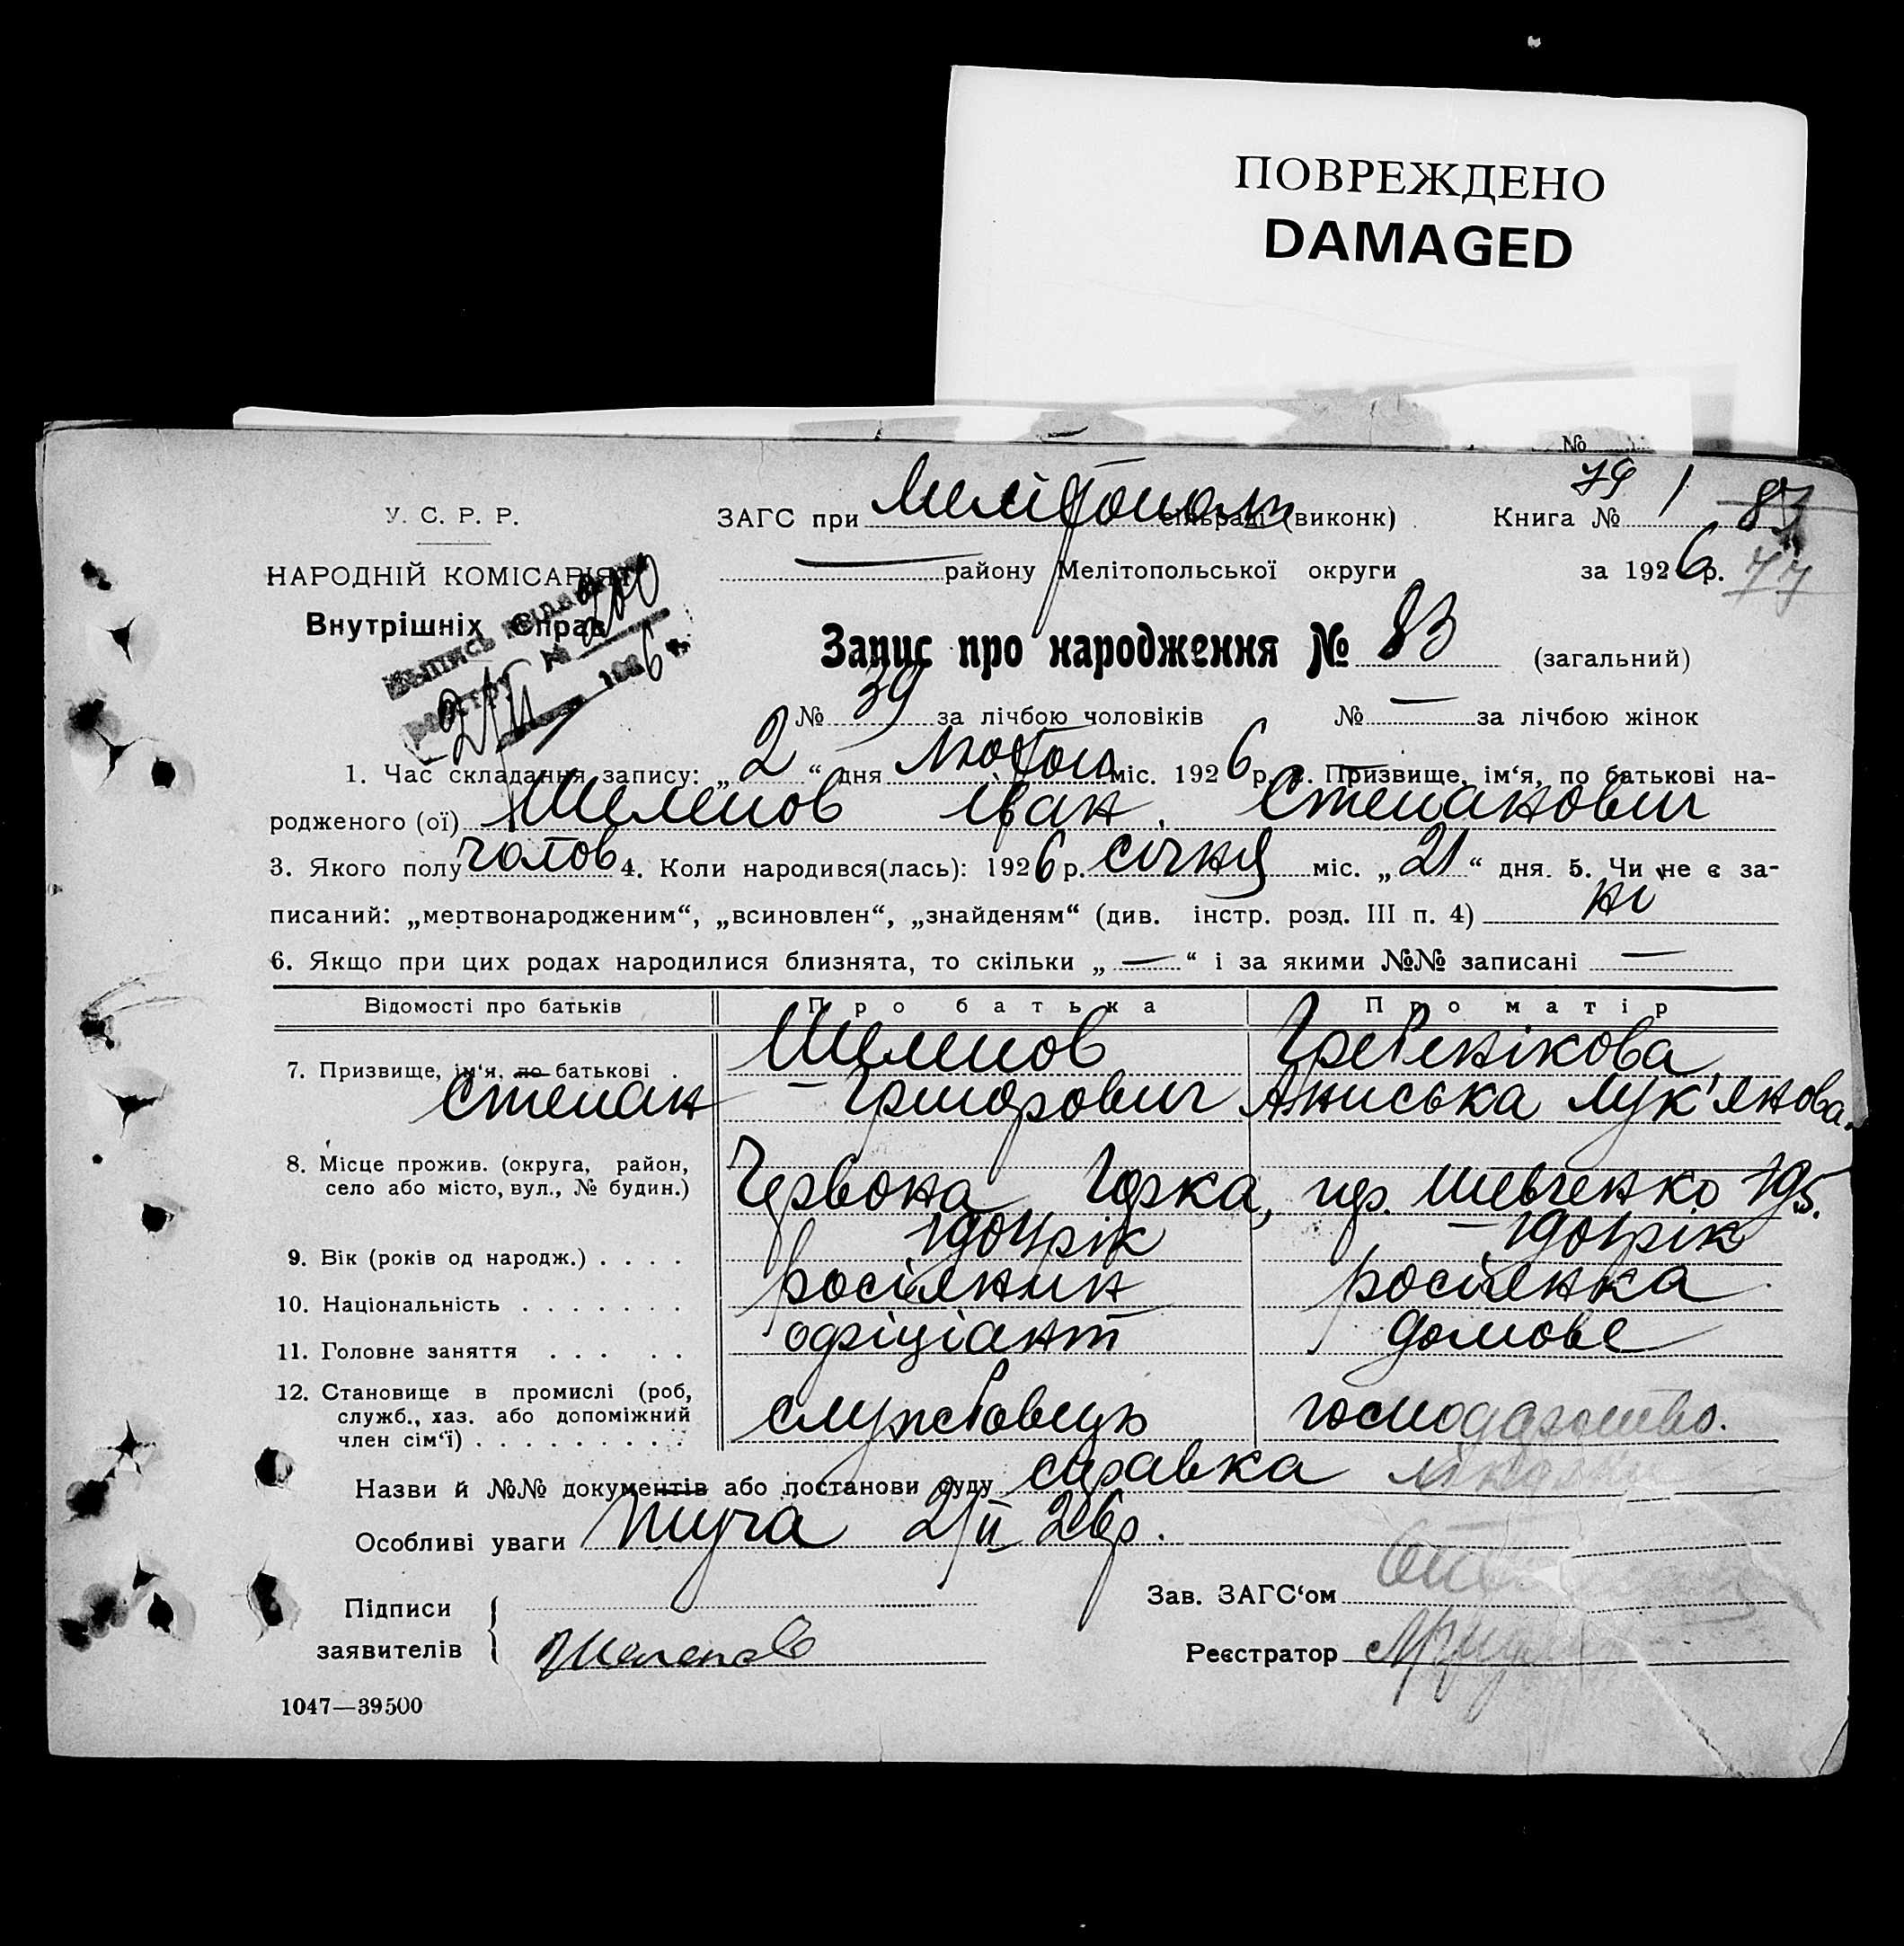 ПОВРЕЖДЕНО
DAMAGED
№
79 1 83
У. С. Р. Р.
ЗАГС при Мелітополь сільраді (виконк) Книга №
НАРОДНІЙ КОМІСАРІЯТ
району Мелітопольської округи за 1926 р. 77
Внутрішніх Справ
200
1926 р.
2/II
Запис про народження № 83 (загальний)
№ 39 за лічбою чоловіків № — за лічбою жінок
1. Час складання запису: „2“ дня Лютого міс. 1926 р. 2. Призвище, ім‘я, по батькові на-
родженого (ої) Шелепов Іван Степанович
3. Якого полу чолов 4. Коли народився(лась): 1926 р. січня міс. „21“ дня. 5. Чи не є за-
писаний: „мертвонародженим“, „всиновлен“, „знайденям“ (див. інстр. розд. III п. 4) ні
6. Якщо при цих родах народилися близнята, то скільки „—“ і за якими №№ записані —
Відомості про батьків Про батька Про матір
7. Призвище, ім‘я, по батькові . Шелепов Гребенікова
Степан – Григорович Аниська Лук'янова.
8. Місце прожив. (округа, район,
село або місто, вул., № будин.) Червона Горка, Шевченко 195.
9. Вік (років од народж.) . . . .
10. Національність . . . . . . . росіянин росіянка
11. Головне заняття . . . . . офіціант домове
12. Становище в промислі (роб,
служб., хаз. або допоміжний
член сім‘ї) . . . . . . . . . службовець господарство.
Назви й №№ документів або постанови суду справка
Особливі уваги 2/II 26р.
Зав. ЗАГС‘ом
Підписи
заявителів Шелепов
Реєстратор
1047—39500